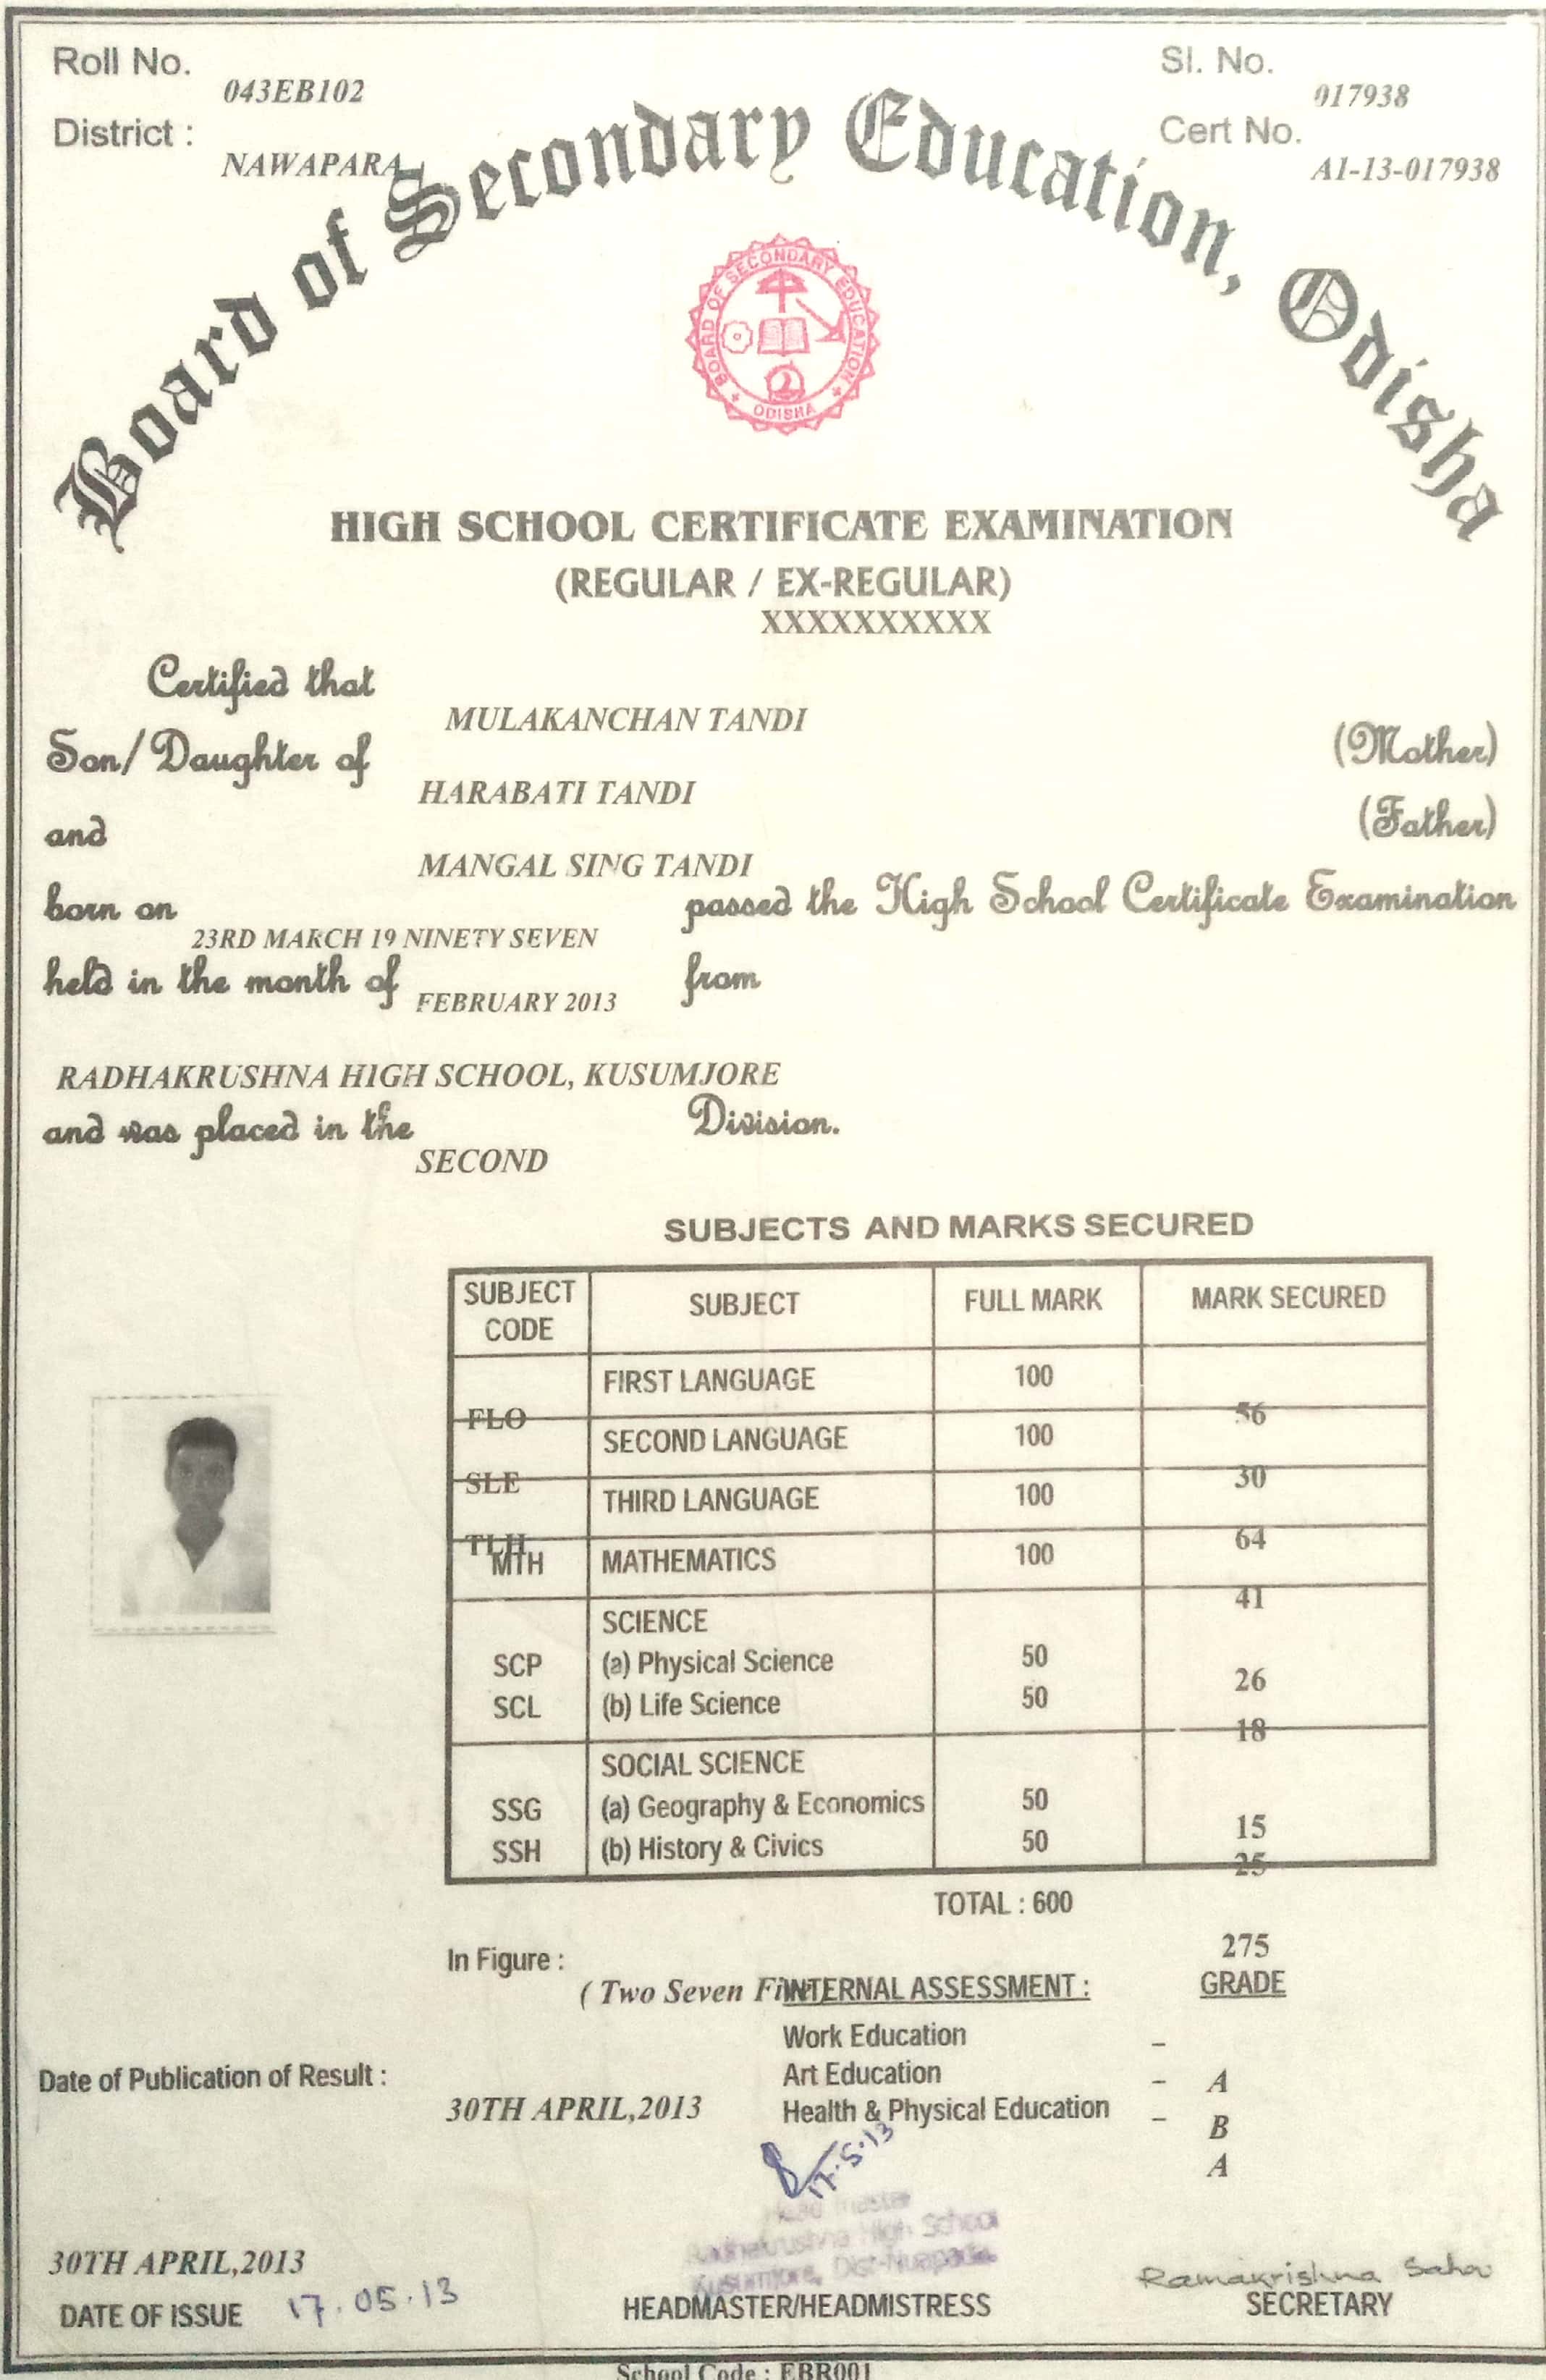 Roll No. 043EB102
Sl. No. 017938
District : NAWAPARA
Cert No. A1-13-017938
Board of Secondary Education, Odisha
BOARD OF SECONDARY EDUCATION
ODISHA
HIGH SCHOOL CERTIFICATE EXAMINATION
(REGULAR / EX-REGULAR)
XXXXXXXXXX
Certified that MULAKANCHAN TANDI
Son/Daughter of HARABATI TANDI (Mother)
and MANGAL SING TANDI (Father)
born on 23RD MARCH 19 NINETY SEVEN passed the High School Certificate Examination
held in the month of FEBRUARY 2013 from
RADHAKRUSHNA HIGH SCHOOL, KUSUMJORE
and was placed in the SECOND Division.
SUBJECTS AND MARKS SECURED
SUBJECT CODE SUBJECT FULL MARK MARK SECURED
FLO FIRST LANGUAGE 100 56
SLE SECOND LANGUAGE 100 30
TLH THIRD LANGUAGE 100 64
MTH MATHEMATICS 100 41
SCIENCE
SCP (a) Physical Science 50 26
SCL (b) Life Science 50 18
SOCIAL SCIENCE
SSG (a) Geography & Economics 50 15
SSH (b) History & Civics 50 25
TOTAL : 600
In Figure : 275
( Two Seven Five
INTERNAL ASSESSMENT : GRADE
Work Education - A
Art Education - B
Health & Physical Education - A
Date of Publication of Result : 30TH APRIL,2013
17.5.13
Head Master
Radhakrushna High School
Kusumjore, Dist-Nuapada
30TH APRIL,2013
DATE OF ISSUE 17.05.13
HEADMASTER/HEADMISTRESS
Ramakrishna Sahu
SECRETARY
School Code : EBR001